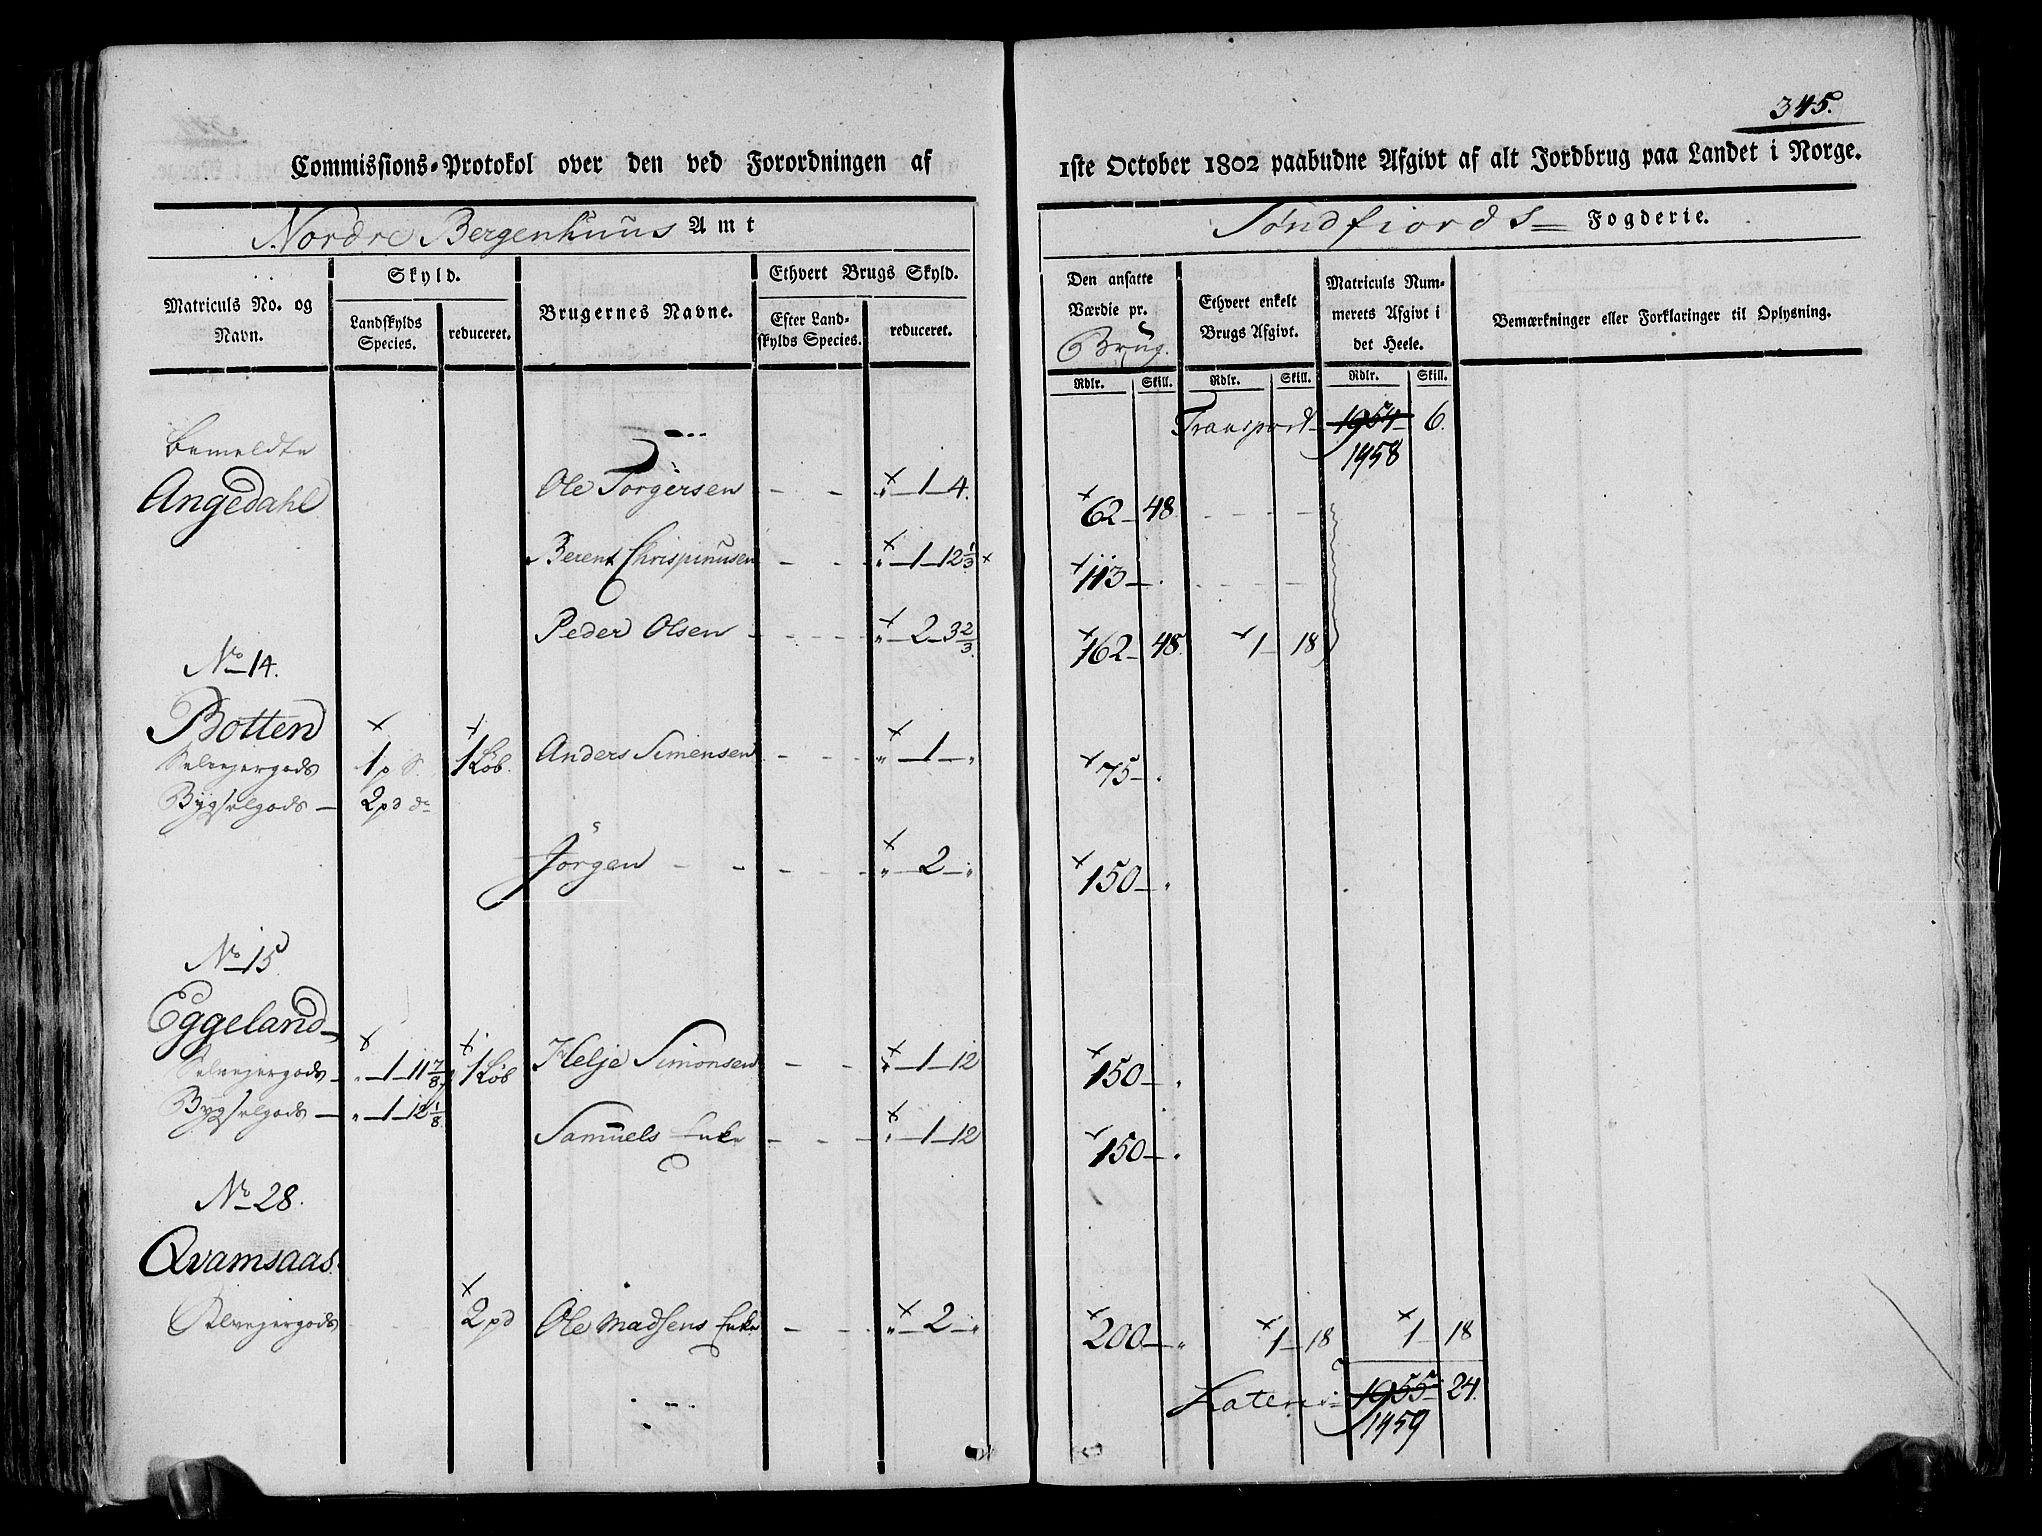 345.
Commissions-Protokol over den ved Forordningen af 1ste October 1802 paabudne Afgivt af alt Jordbrug paa Landet i Norge.
Nordre Bergenhuus Amt
Søndfiords Fogderie.
Matriculs No. og Navn.
Skyld.
Landskylds Species.
reduceret.
Brugernes Navne.
Ethvert Brugs Skyld.
Efter Landskylds Species.
reduceret.
Den ansatte Værdie pr. Brug.
Ethvert enkelt Brugs Afgivt.
Matriculs Nummerets Afgivt i det Heele.
Bemærkninger eller Forklaringer til Oplysning.
Rdlr. Skill. Rdlr. Skill. Rdlr. Skill.
Transport 1954 6.
1958
bemeldte
Angedahl
Ole Torgersen - - " 1 4. 62 48
Berent Chrispinusen - - " 1 12 1/3 × 113 -
Peder Olsen - - " 2 3 2/3 162 48. 1 18
No 14.
Botten
Selveiergods 1 p S. 1 Løb. Anders Simensen - - " 1 " 75 -
Bygselgods - 2 pd do
Jörgen - - - " 2 " 150 - "
No 15
Eggeland
Selveiergods - " 1 11 7/8 1 Løb Helje Simonsen - - " 1 12 150 - "
Bygselgods - " 1 12 1/8
Samuels Enke - - " 1 12 150 - "
No 28.
Qvamsaas
Selveiergods 2 pd Ole Madsens Enke - - " 2 " 200 - " 1 18 1 18
Lateris 1955 24.
1959